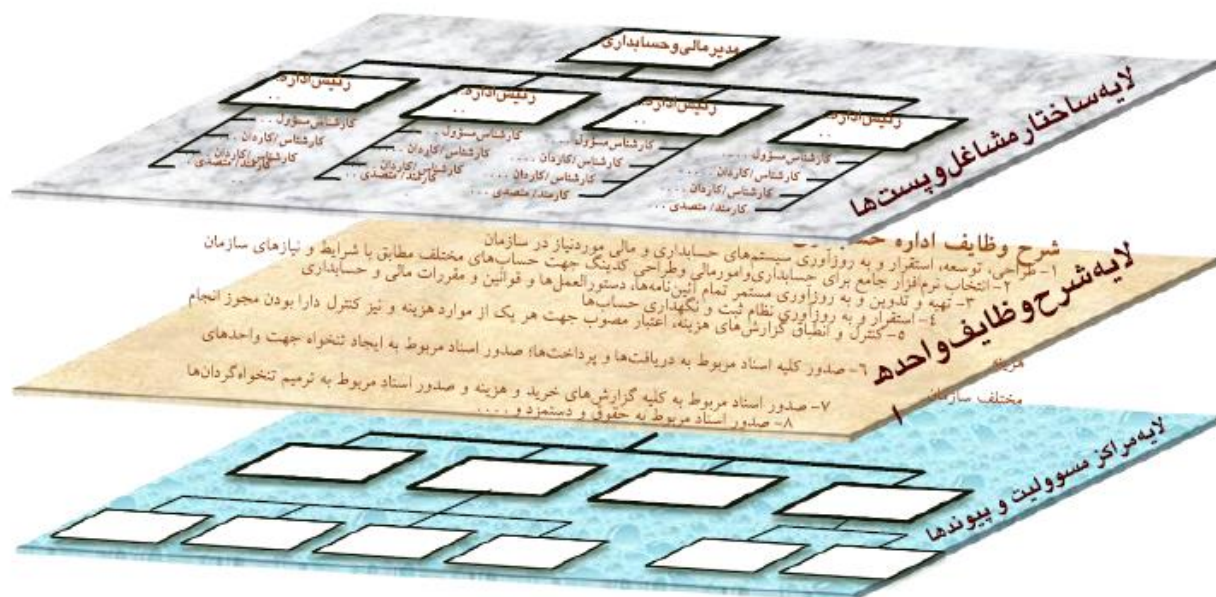 مدیر مالی و حسابداری
رئیس اداره.
. .
رئیس اداره.
. .
رئیس اداره.
. .
رئیس اداره.
. .
کارشناس مسؤول . . . .
کارشناس/کاردان . . . .
کارشناس/کاردان . . . .
کارمند/ متصدی . . .
کارشناس مسؤول . . .
کارشناس/کاردان . . . .
کارشناس/کاردان . . . .
کارمند/ متصدی . . .
کارشناس مسؤول . .
کارشناس/کاردان . .
کارشناس/کاردان . .
کارمند/ متصدی . .
کارشناس مسؤول . .
کارشناس/کاردان . .
کارشناس/کاردان . .
کارمند/ متصدی . .
. . .
لایه ساختار مشاغل و پست‌ها
شرح وظایف اداره
۱- طراحی، توسعه، استقرار و به روزآوری سیستم‌های حسابداری و مالی موردنیاز در سازمان
۲- انتخاب نرم‌افزار جامع برای حسابداری‌وامورمالی وطراحی کدینگ جهت حساب‌های مختلف مطابق با شرایط و نیازهای سازمان
۳- تهیه و تدوین و به روزآوری مستمر تمام آئین‌نامه‌ها، دستورالعمل‌ها و قوانین و مقررات مالی و حسابداری
۴- استقرار و به روزآوری نظام ثبت و نگهداری حساب‌ها
۵- کنترل و انطباق گزارش‌های هزینه، اعتبار مصوب جهت هر یک از موارد هزینه و نیز کنترل دارا بودن مجوز انجام
هزینه
۶- صدور کلیه اسناد مربوط به دریافت‌ها و پرداخت‌ها؛ صدور اسناد مربوط به ایجاد تنخواه جهت واحدهای
مختلف سازمان
۷- صدور اسناد مربوط به کلیه گزارش‌های خرید و هزینه و صدور اسناد مربوط به ترمیم تنخواه‌گردان‌ها
۸- صدور اسناد مربوط به حقوق و دستمزد و . . . .
لایه شرح وظایف واحده
ا
لایه مراکز مسوولیت و پیوندها